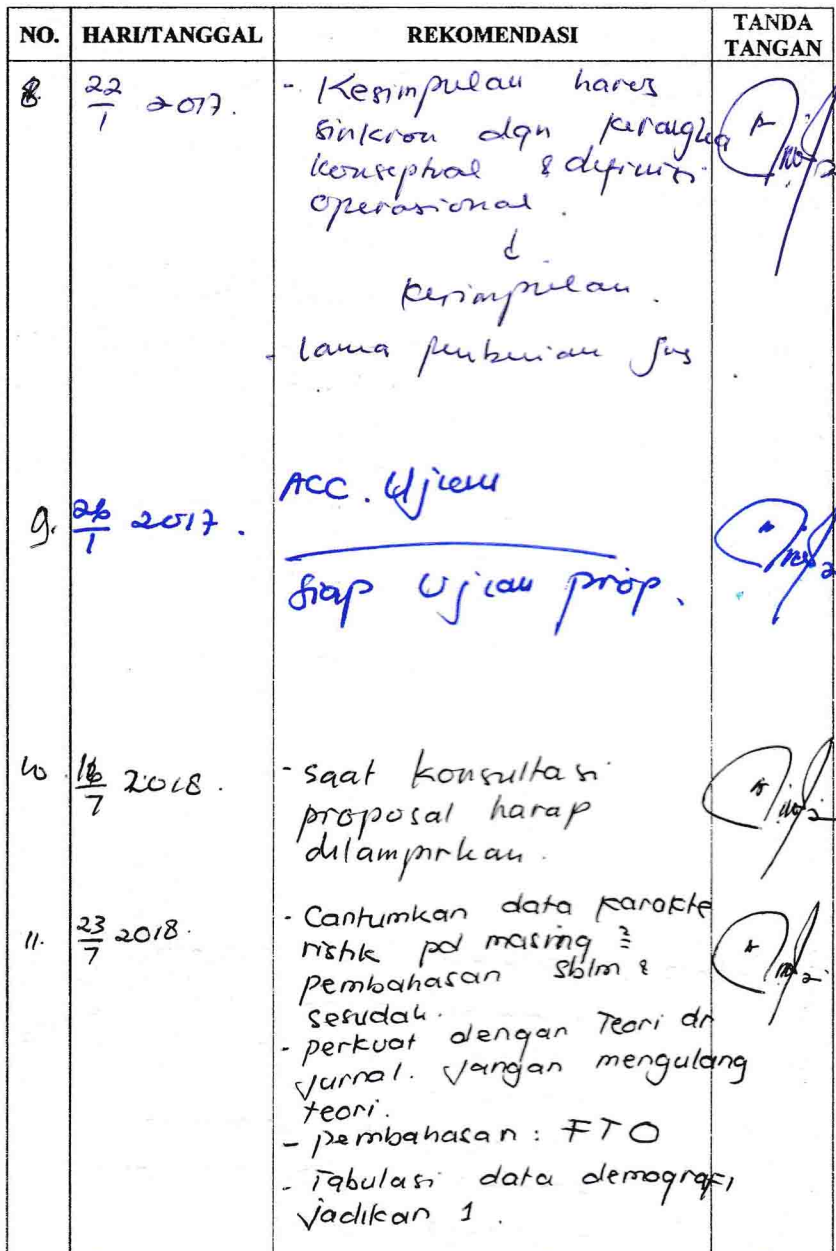 NO. HARI/TANGGAL REKOMENDASI TANDA TANGAN
8. 22/1 2017. - Kesimpulan harus
sinkron dgn kerangka
konseptual & definisi
operasional.
↓
Kesimpulan.
- lama pemberian jus
9. 26/1 2017. ACC. Ujian
Siap Ujian prop.
10. 16/7 2018. - saat konsultasi
proposal harap
dilampirkan.
11. 23/7 2018. - Cantumkan data karakte
ristik pd masing²
pembahasan sblm &
sesudah.
- perkuat dengan Teori dr
jurnal. Jangan mengulang
teori.
- pembahasan: FTO
- Tabulasi data demografi
jadikan 1.